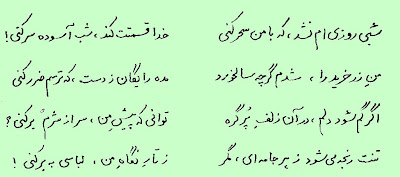 شبی روزی ام نشد، که با من سحر کنی خدا قسمتت کند، شب آسوده سر کنی!
منِ زر خرید را، شدم گرچه سالخورد مده رایگان ز دست، که ترسم ضرر کنی
اگر گم شود دلم، در آن زلفِ پُر گره توانی که پیشِ من، سر از شرم بر کنی؟
تنت رنجه می شود ز هر جامه ای، مگر ز تارِ نگاهِ من، لباسی به بر کنی!